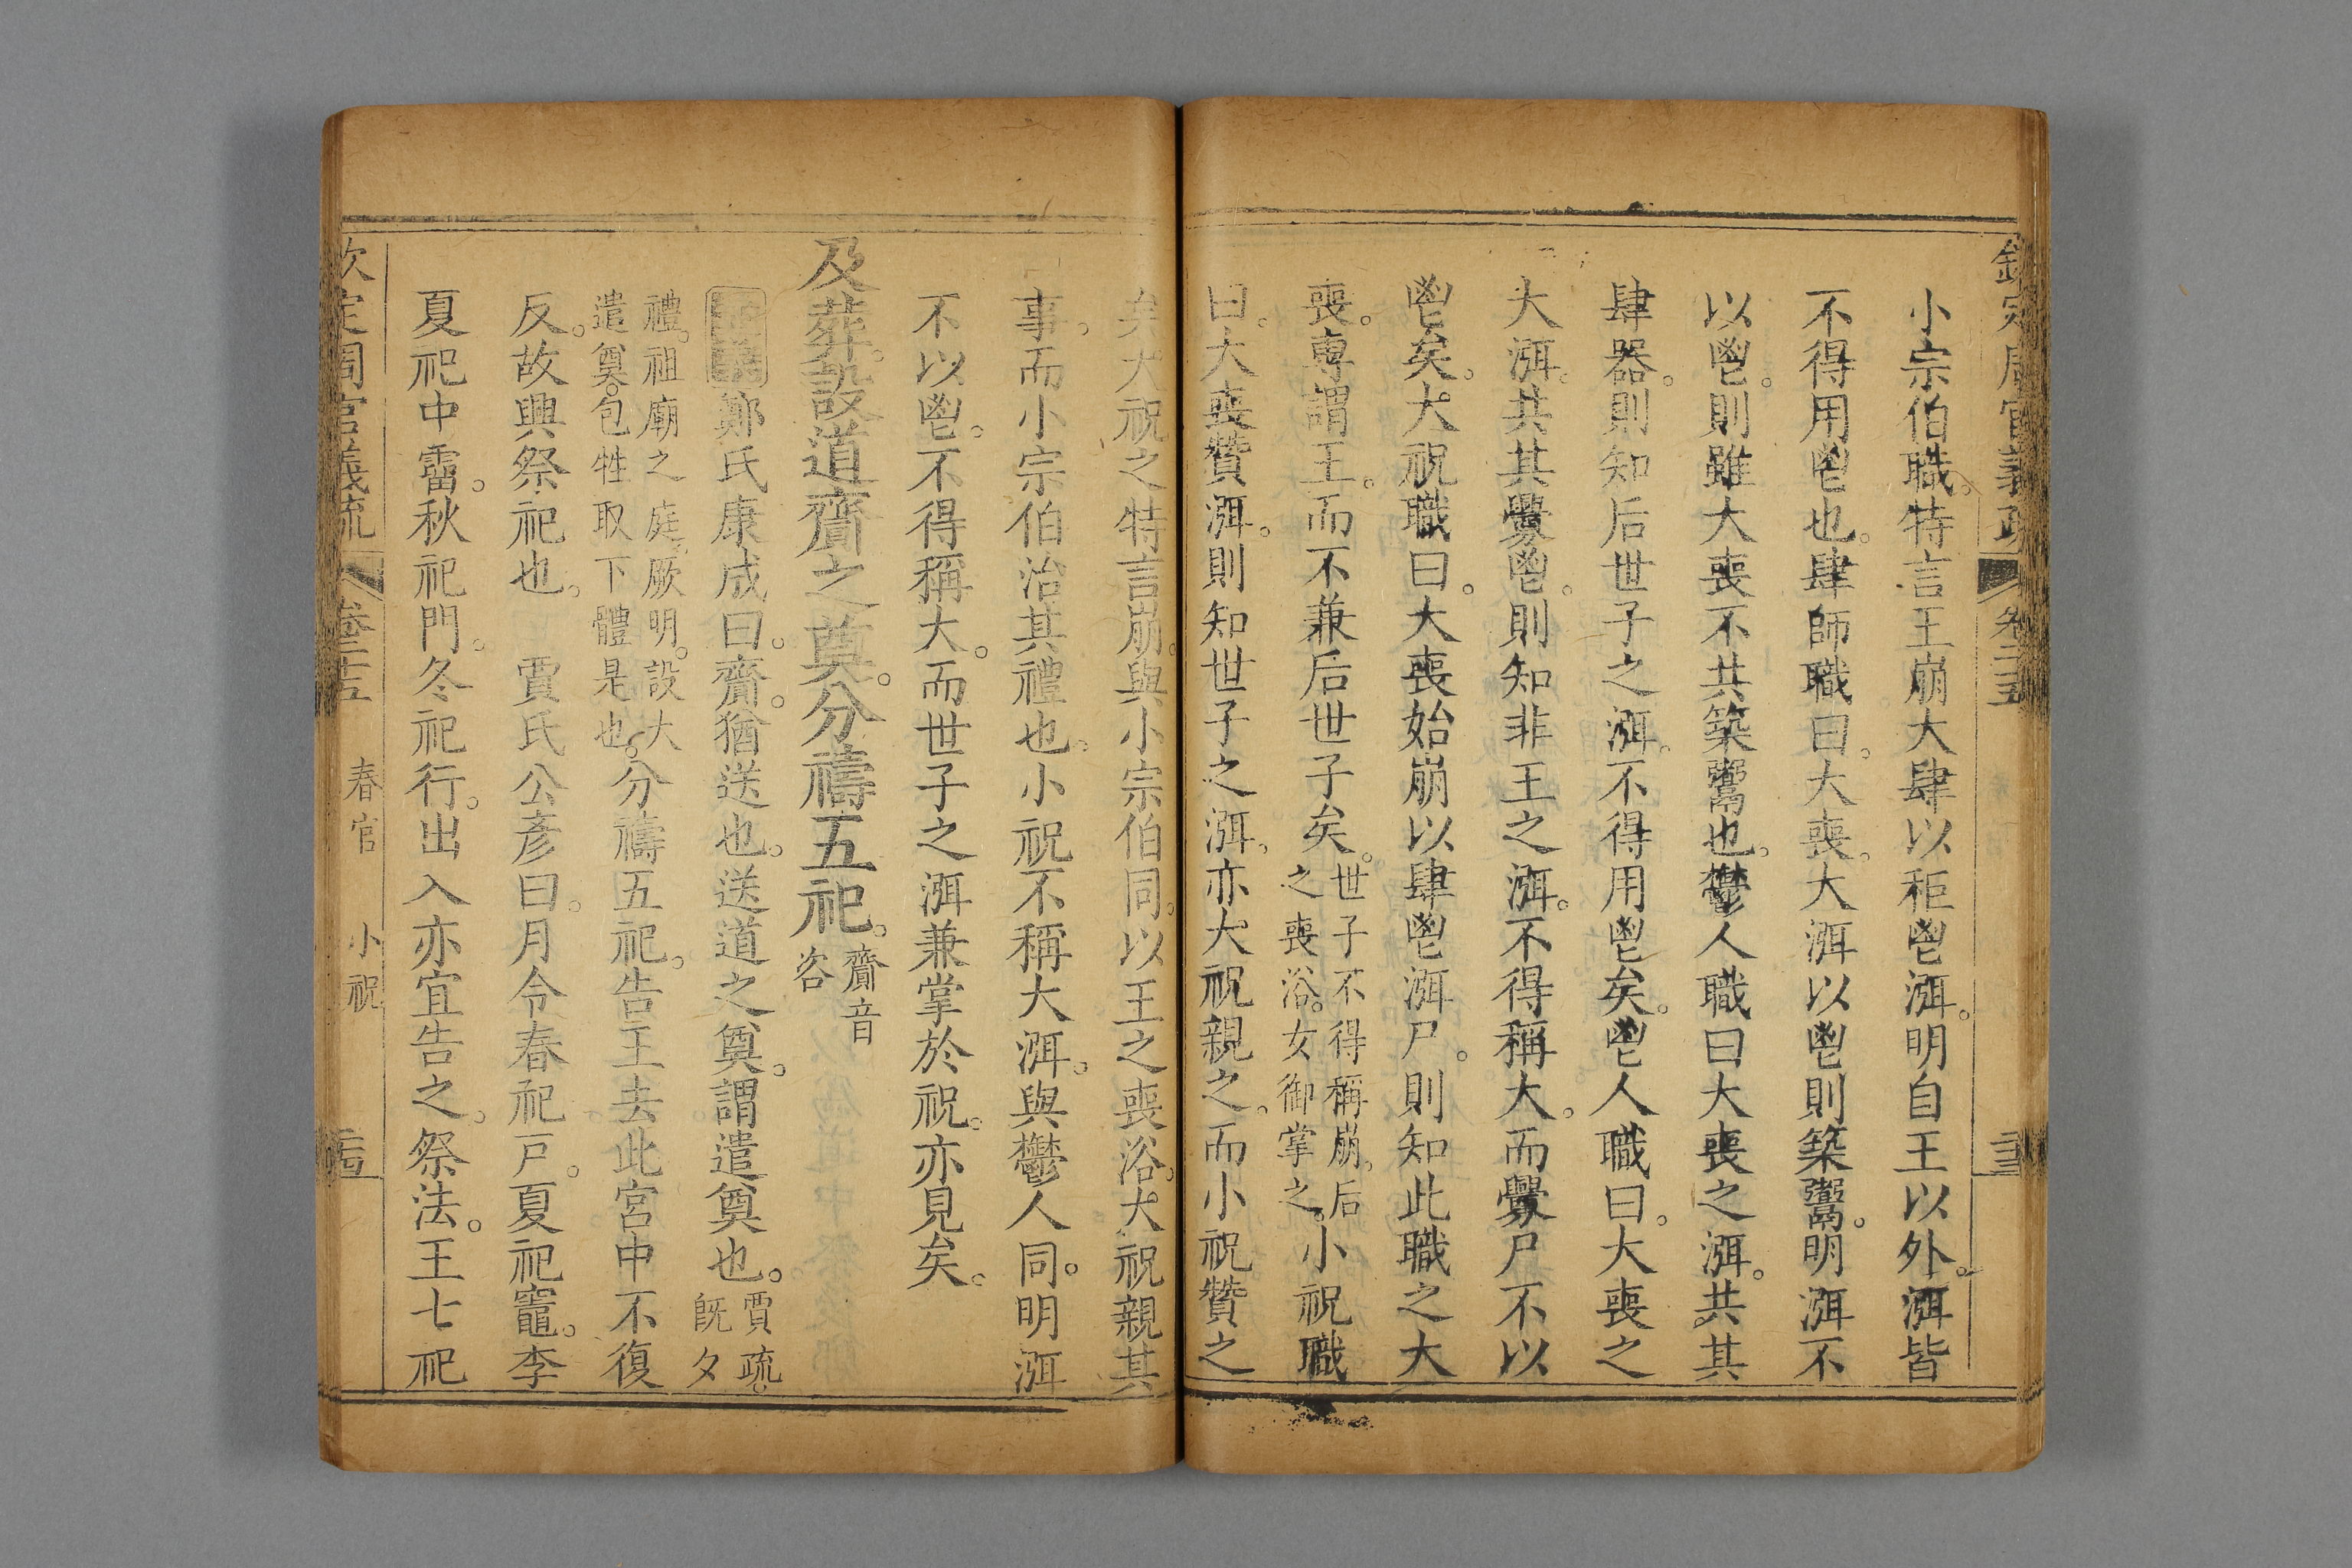 小宗伯職。特言王崩大肆以秬鬯渳。明自王以外。渳皆
不得用鬯也。肆師職曰。大喪。大渳以鬯則築鬻。明渳不
以鬯。則雖大喪不共築鬻也。鬱人職曰大喪之渳。共其
肆器。則知后世子之渳。不得用鬯矣。鬯人職曰。大喪之
大渳。共其釁鬯。則知非王之渳。不得稱大。而釁尸不以
鬯矣。大祝職曰。大喪始崩以肆鬯渳尸。則知此職之大
喪。專謂王。而不兼后世子矣。世子不得稱崩。后
之喪浴。女御掌之。小祝職
曰。大喪贊渳。則知世子之渳。亦大祝親之。而小祝贊之
矣。大祝之特言崩。與小宗伯同。以王之喪浴。大祝親其
事。而小宗伯治其禮也。小祝不稱大渳。與鬱人同。明渳
不以鬯。不得稱大。而世子之渳兼掌於祝。亦見矣。
及葬。設道齎之奠。分禱五祀。齎音
咨
鄭氏康成曰。齎。猶送也。送道之奠。謂遣奠也。賈疏。
既夕
禮。祖廟之庭。厥明。設大
遣奠。包牲取下體是也。分禱五祀。告王去此宮中不復
反。故興祭祀也。 賈氏公彥曰。月令春祀戸。夏祀竈。季
夏祀中霤。秋祀門。冬祀行。出入亦宜告之。祭法。王七祀
欽定周官義疏 卷二十五 春官 小祝